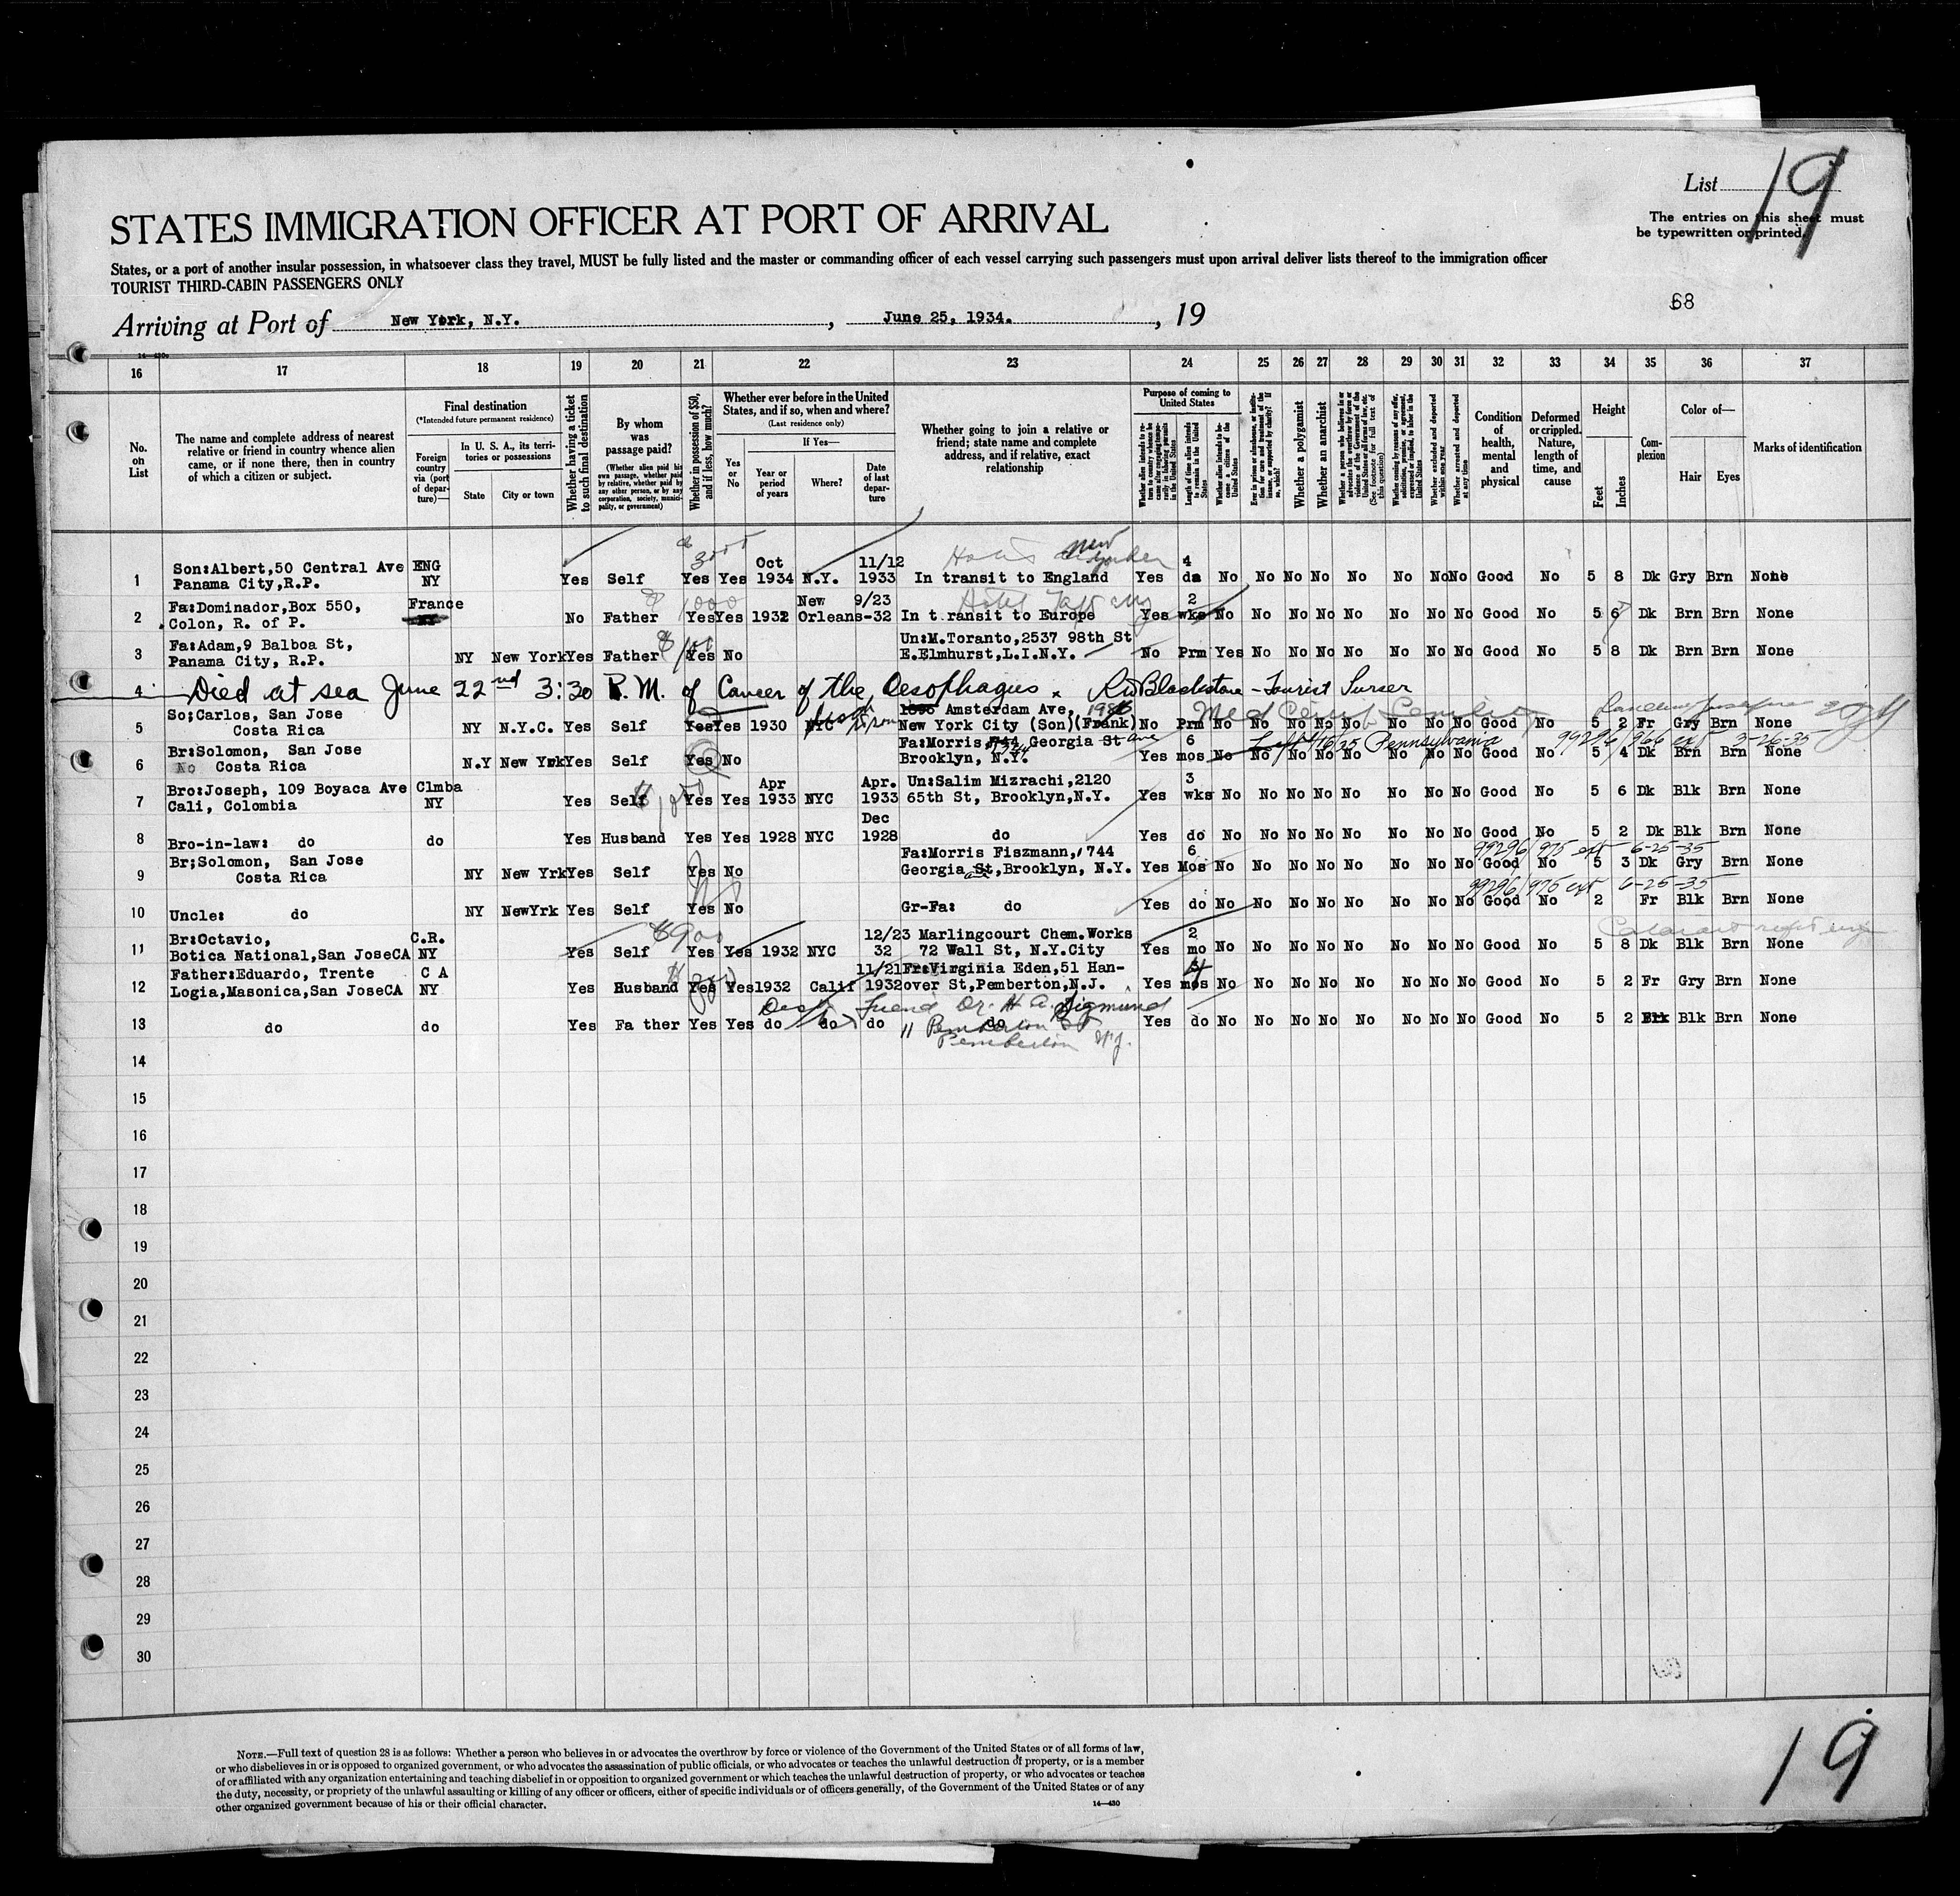 List 19
STATES IMMIGRATION OFFICER AT PORT OF ARRIVAL
The entries on this sheet must
be typewritten or printed.
States, or a port of another insular possession, in whatsoever class they travel, MUST be fully listed and the master or commanding officer of each vessel carrying such passengers must upon arrival deliver lists thereof to the immigration officer
TOURIST THIRD-CABIN PASSENGERS ONLY
68
Arriving at Port of New York, N.Y. , June 25, 1934. , 19
16 17 18 19 20 21 22 23 24 25 26 27 28 29 30 31 32 33 34 35 36 37
No. on List
The name and complete address of nearest relative or friend in country whence alien came, or if none there, then in country of which a citizen or subject.
Final destination
(*Intended future permanent residence)
Foreign country via (port of departure)—
In U. S. A., its territories or possessions
State City or town
Whether having a ticket to such final destination
By whom was passage paid?
(Whether alien paid his own passage, whether paid by relative, whether paid by any other person, or by any corporation, society, municipality, or government)
Whether in possession of $50, and if less, how much?
Whether ever before in the United States, and if so, when and where?
(Last residence only)
Yes or No
If Yes—
Year or period of years Where? Date of last departure
Whether going to join a relative or friend; state name and complete address, and if relative, exact relationship
Purpose of coming to United States
Length of time alien intends to remain in the United States
Whether a polygamist
Whether an anarchist
Whether excluded and deported within one year
Whether arrested and deported at any time
Condition of health, mental and physical
Deformed or crippled. Nature, length of time, and cause
Height
Feet Inches
Complexion
Color of—
Hair Eyes
Marks of identification
3000 new yorker
Son:Albert,50 Central Ave ENG Oct 11/12 4
1 Panama City,R.P. NY Yes Self Yes Yes 1934 N.Y. 1933 In transit to England Yes da No No No No No No No No Good No 5 8 Dk Gry Brn None
Fa:Dominador,Box 550, France 1000 New 9/23 Hotel Taft 2
2 Colon, R. of P. No Father Yes Yes 1932 Orleans-32 In transit to Europe Yes wks No No No No No No No No Good No 5 6 Dk Brn Brn None
Fa:Adam,9 Balboa St, Un:M.Toranto,2537 98th St
3 Panama City, R.P. NY New York Yes Father $100 Yes No E.Elmhurst,L.I.N.Y. No Prm Yes No No No No No No No Good No 5 8 Dk Brn Brn None
4 Died at sea June 22nd 3:30 P.M. of Cancer of the Oesophagus. RW Blackstone - Tourist Purser
So;Carlos, San Jose Amsterdam Ave, 1986
5 Costa Rica NY N.Y.C. Yes Self Yes Yes 1930 NYC New York City (Son)(Frank) No Prm No No No No No No No No Good No 5 2 Fr Gry Brn None
Br:Solomon, San Jose Fa:Morris 744 Georgia St ave 6 Pennsylvania 99296/966 ext 3-26-35
6 No Costa Rica N.Y New York Yes Self Yes No Brooklyn, N.Y. Yes mos No No No No No No No No Good No 5 4 Dk Brn Brn None
Bro:Joseph, 109 Boyaca Ave Clmba Apr Apr. Un:Salim Mizrachi,2120 3
7 Cali, Colombia NY Yes Self Yes Yes 1933 NYC 1933 65th St, Brooklyn,N.Y. Yes wks No No No No No No No No Good No 5 6 Dk Blk Brn None
Dec
8 Bro-in-law: do do Yes Husband Yes Yes 1928 NYC 1928 do Yes do No No No No No No No No Good No 5 2 Dk Blk Brn None
Br;Solomon, San Jose Fa:Morris Fiszmann, 744 6 99296/975 ext 6-25-35
9 Costa Rica NY New Yrk Yes Self Yes No Georgia St,Brooklyn, N.Y. Yes Mos No No No No No No No No Good No 5 3 Dk Gry Brn None
99296/975 ext 6-25-35
10 Uncle: do NY NewYrk Yes Self Yes No Gr-Fa: do Yes do No No No No No No No No Good No 2 Fr Blk Brn None
Br:Octavio, C.R. $900 12/23 Marlingcourt Chem.Works 2 Cataract right eye
11 Botica National,San JoseCA NY Yes Self Yes Yes 1932 NYC 32 72 Wall St, N.Y.City Yes mo No No No No No No No No Good No 5 8 Dk Blk Brn None
Father:Eduardo, Trente C A 11/21 Fr:Virginia Eden,51 Han-
12 Logia,Masonica,San JoseCA NY Yes Husband Yes Yes 1932 Calif 1932 over St,Pemberton,N.J. Yes mos No No No No No No No No Good No 5 2 Fr Gry Brn None
Friend Dr. H. A. Sigmund
13 do do Yes Father Yes Yes do do do do Yes do No No No No No No No No Good No 5 2 Brk Blk Brn None
11 Pemberton St
Pemberton N.J.
14
15
16
17
18
19
20
21
22
23
24
25
26
27
28
29
30
NOTE.—Full text of question 28 is as follows: Whether a person who believes in or advocates the overthrow by force or violence of the Government of the United States or of all forms of law,
or who disbelieves in or is opposed to organized government, or who advocates the assassination of public officials, or who advocates or teaches the unlawful destruction of property, or is a member
of or affiliated with any organization entertaining and teaching disbelief in or opposition to organized government or which teaches the unlawful destruction of property, or who advocates or teaches
the duty, necessity, or propriety of the unlawful assaulting or killing of any officer or officers, either of specific individuals or of officers generally, of the Government of the United States or of any
other organized government because of his or their official character.
14—430
19